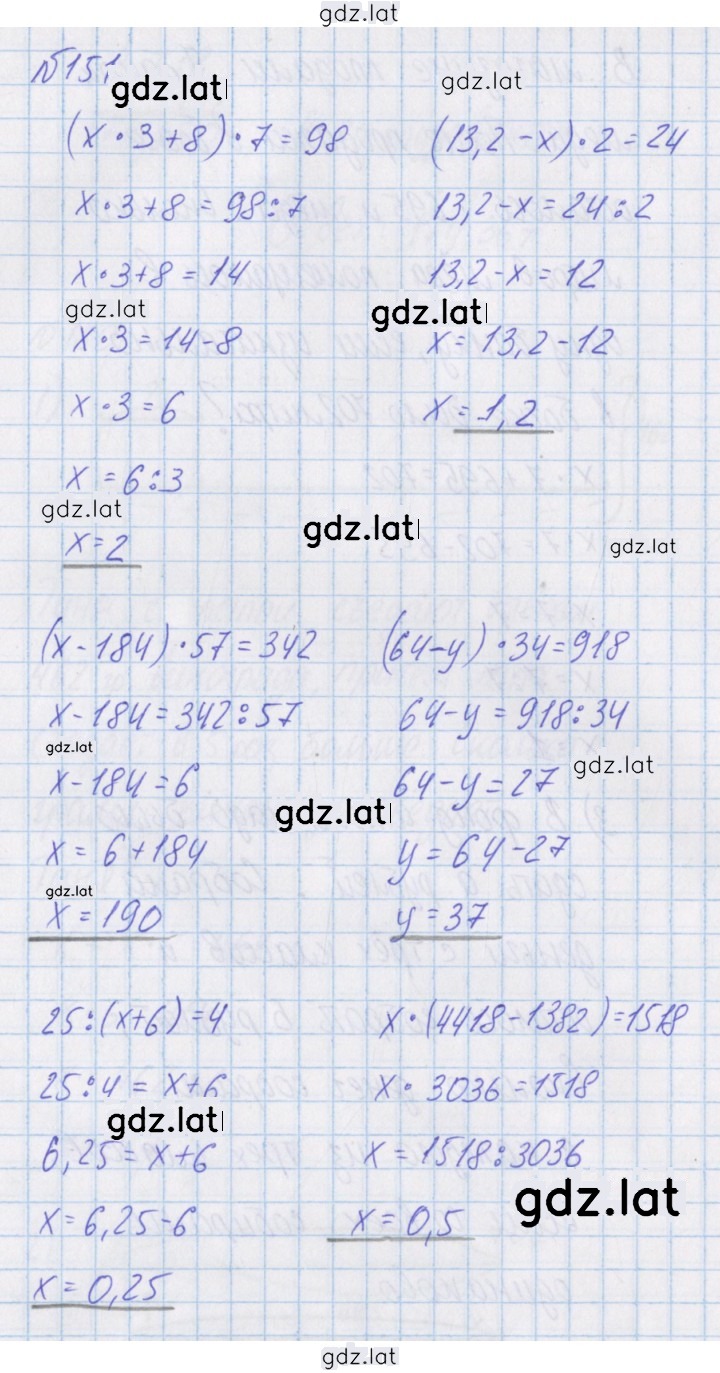 gdz.lat
№151
gdz.lat
gdz.lat
(x · 3 + 8) · 7 = 98
x · 3 + 8 = 98 : 7
x · 3 + 8 = 14
gdz.lat
x · 3 = 14 - 8
x · 3 = 6
x = 6 : 3
gdz.lat
x = 2
(13,2 - x) · 2 = 24
13,2 - x = 24 : 2
13,2 - x = 12
gdz.lat
x = 13,2 - 12
x = 1,2
gdz.lat
gdz.lat
(x - 184) · 57 = 342
x - 184 = 342 : 57
gdz.lat
x - 184 = 6
x = 6 + 184
gdz.lat
x = 190
(64 - y) · 34 = 918
64 - y = 918 : 34
gdz.lat
64 - y = 27
gdz.lat
y = 64 - 27
y = 37
25 : (x + 6) = 4
25 : 4 = x + 6
gdz.lat
6,25 = x + 6
x = 6,25 - 6
x = 0,25
x · (4418 - 1382) = 1518
x · 3036 = 1518
x = 1518 : 3036
gdz.lat
x = 0,5
gdz.lat